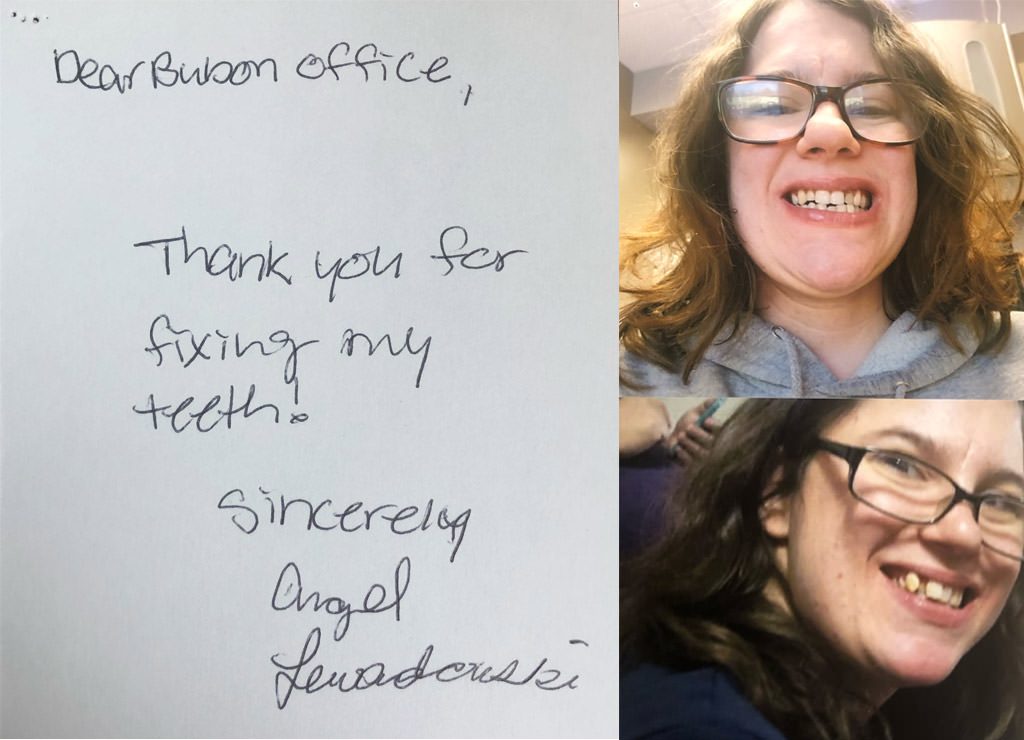 Dear Bubon office,
Thank you for
fixing my
teeth!
Sincerely
Angel
Lewadowski